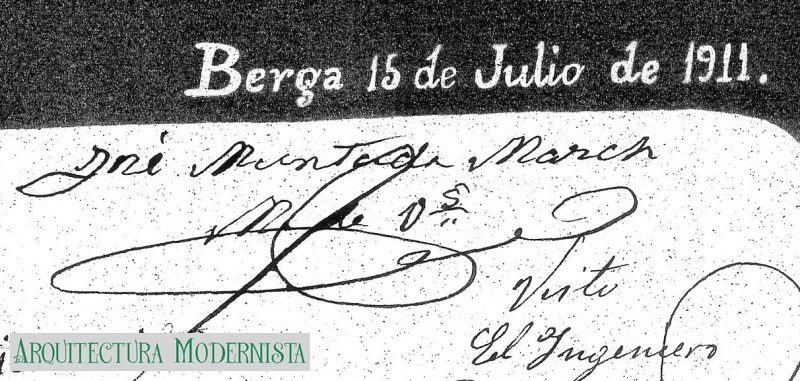 Berga 15 de Julio de 1911.
José Muntada March
M. de Os
Visto
El Ingeniero
ARQUITECTURA MODERNISTA